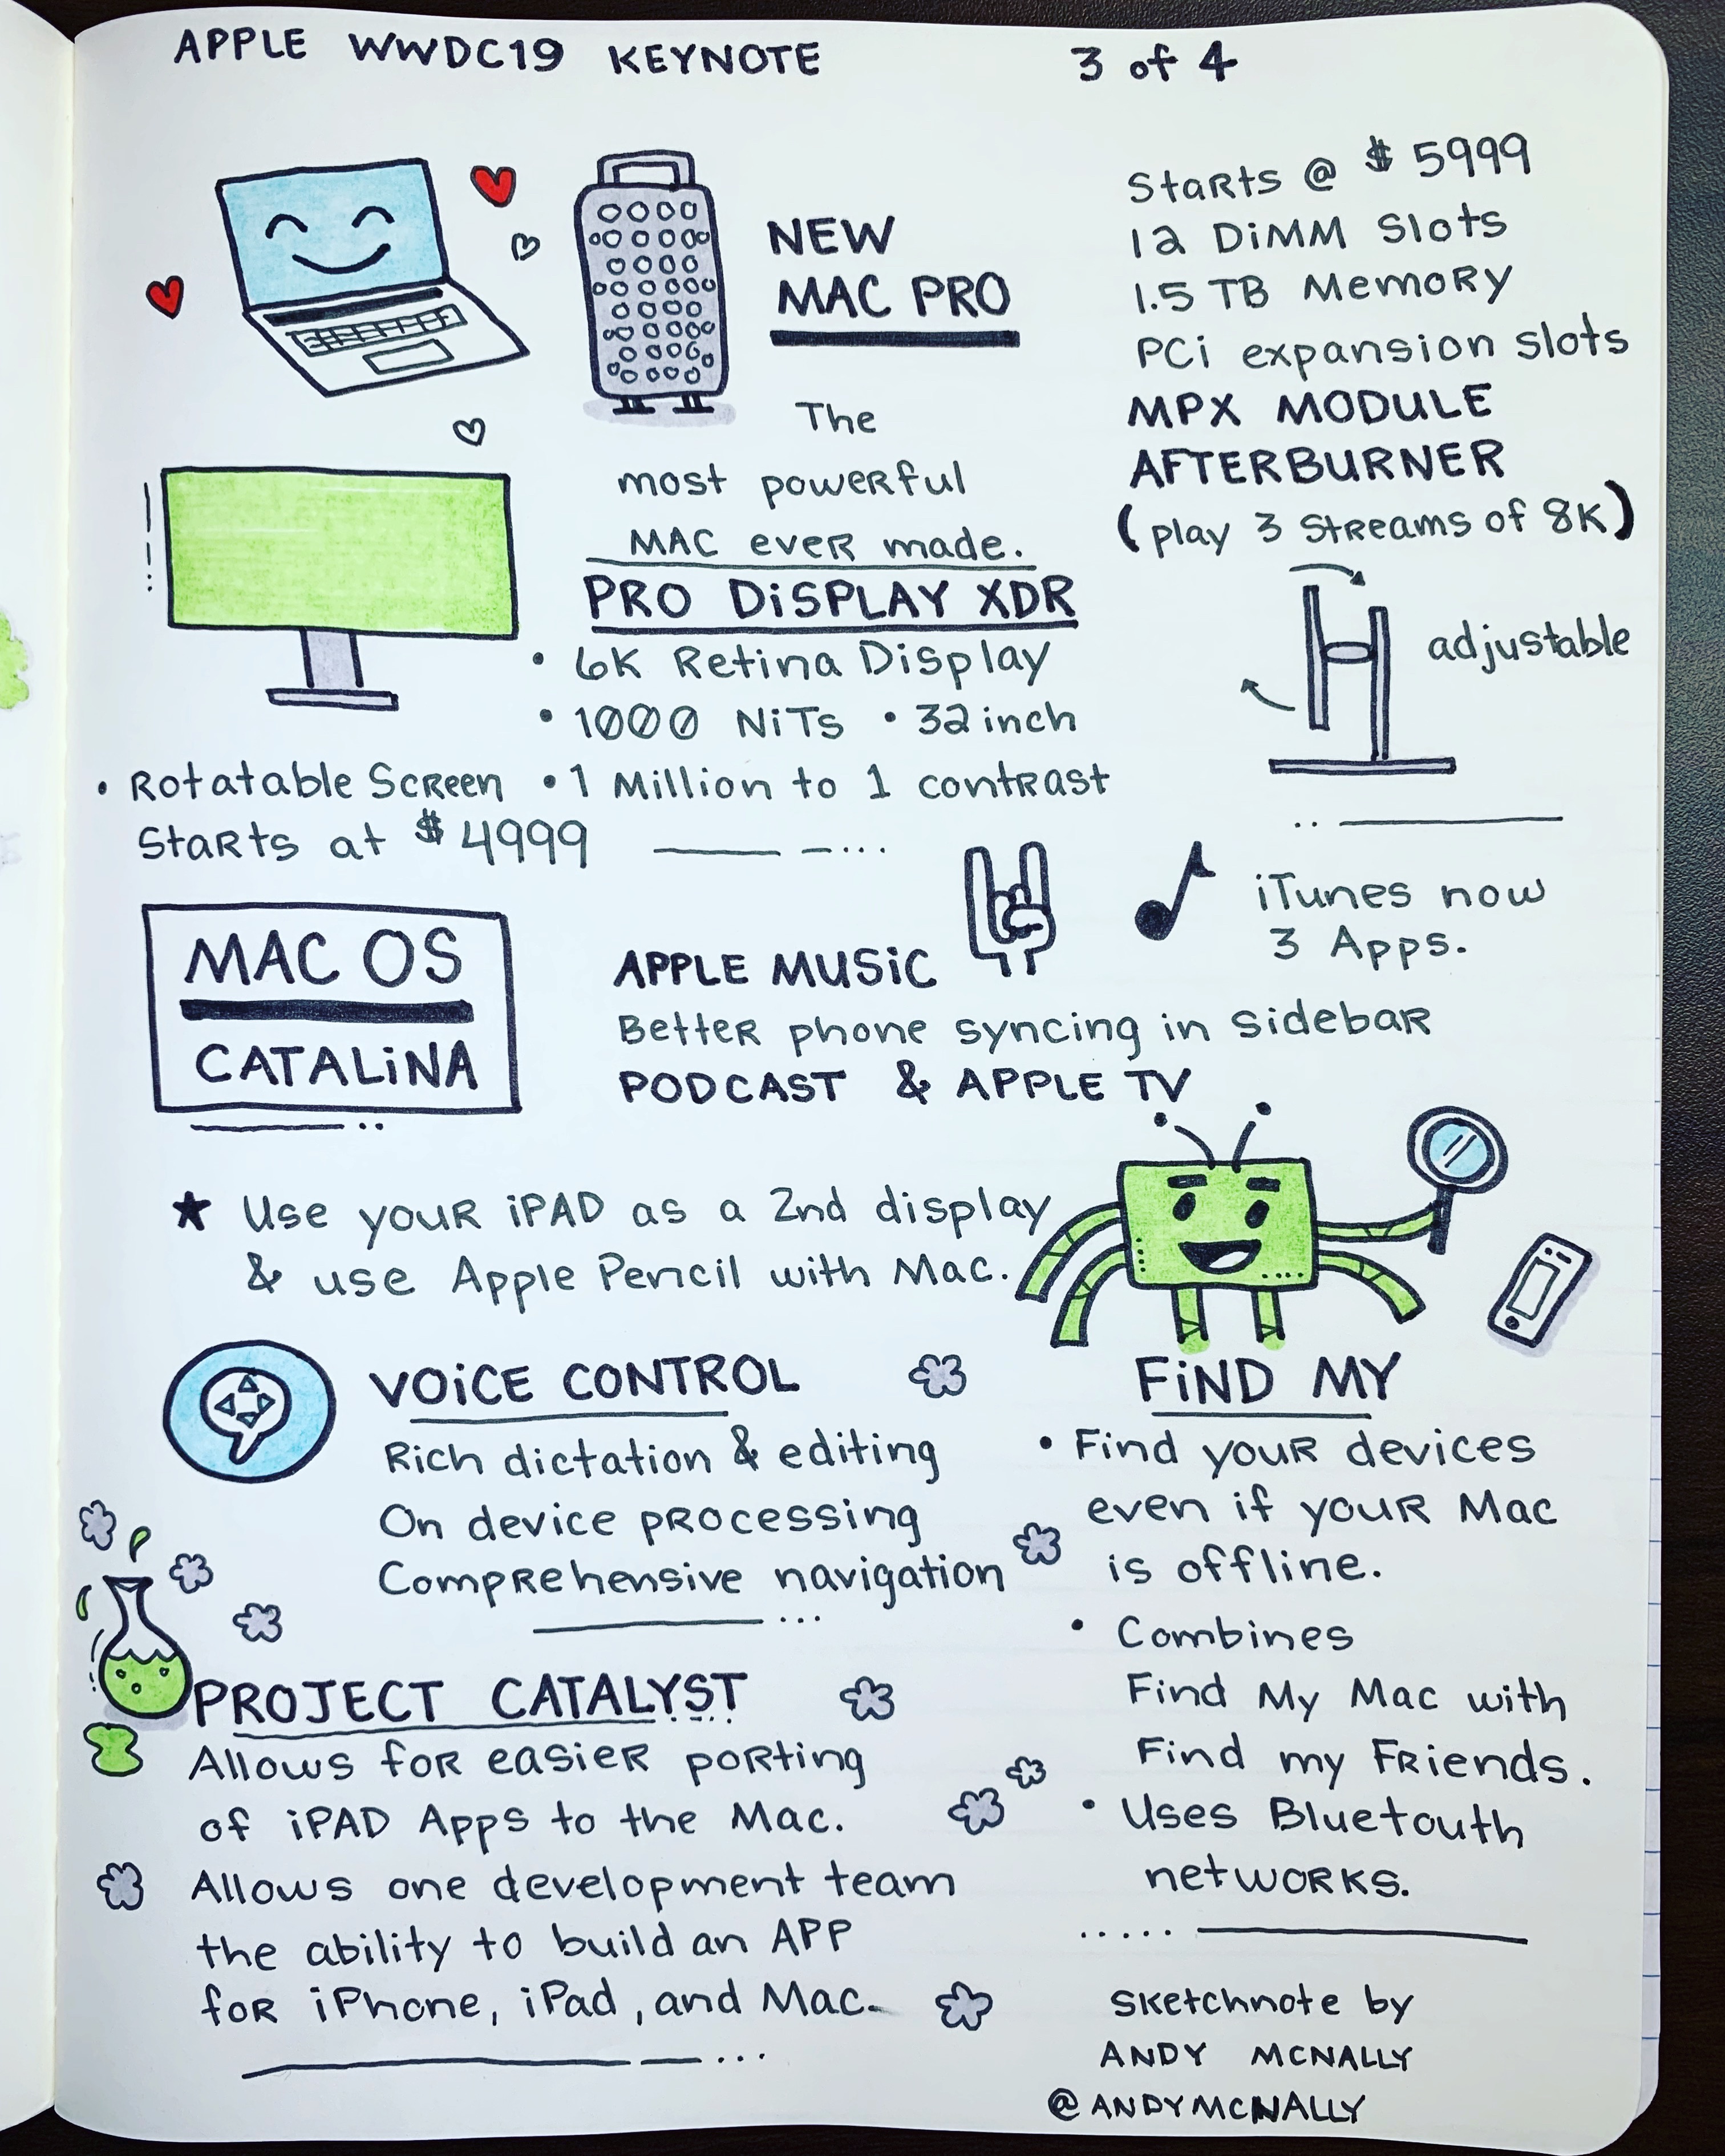 APPLE WWDC19 KEYNOTE 3 of 4
NEW
MAC PRO
The
most powerful
MAC ever made.
Starts @ $5999
12 DIMM Slots
1.5 TB Memory
PCi expansion slots
MPX MODULE
AFTERBURNER
(play 3 streams of 8K)
PRO DISPLAY XDR
• 6K Retina Display
• 1000 NiTS • 32 inch
• Rotatable Screen • 1 Million to 1 contrast
Starts at $4999
adjustable
MAC OS
CATALINA
APPLE MUSIC
iTunes now
3 Apps.
Better phone syncing in sidebar
PODCAST & APPLE TV
★ Use your iPAD as a 2nd display
& use Apple Pencil with Mac.
VOICE CONTROL
Rich dictation & editing
On device processing
Comprehensive navigation
FIND MY
• Find your devices
even if your Mac
is offline.
• Combines
Find My Mac with
Find my Friends.
• Uses Bluetouth
networks.
PROJECT CATALYST
Allows for easier porting
of iPAD Apps to the Mac.
Allows one development team
the ability to build an APP
for iPhone, iPad, and Mac.
Sketchnote by
ANDY MCNALLY
@ANDYMCNALLY